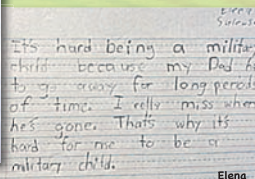 It's hard being a military
child because my Dad h
to go away for long perods
of time. I relly miss when
he's gone. That's why it's
hard for me to be a
military child.
Elena